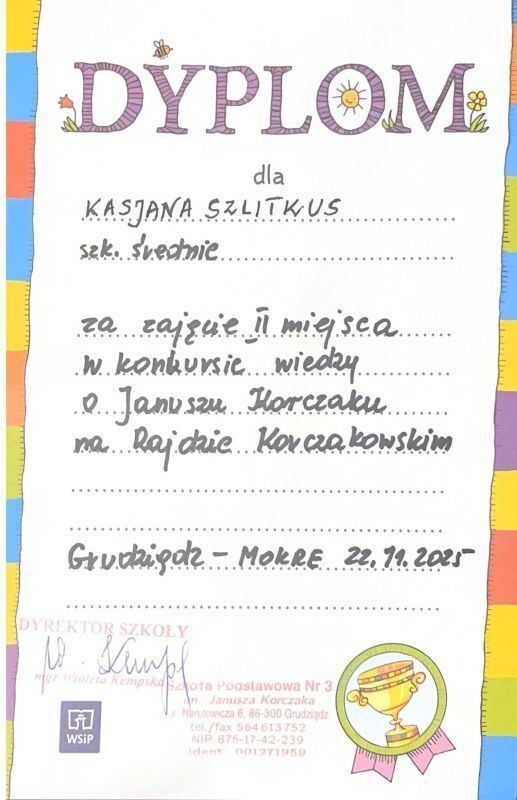 DYPLOM
dla
KASJANA SZLITKUS
szk. średnie
za zajęcie II miejsca
w konkursie wiedzy
o Januszu Korczaku
na Rajdzie Korczakowskim
Grudziądz - MOKRE 22.11.2025
DYREKTOR SZKOŁY
mgr Wioleta Kempska
Szkoła Podstawowa Nr 3
im. Janusza Korczaka
ul. Narutowicza 6, 86-300 Grudziądz
tel./fax 564613752
NIP 876-17-42-239
ident. 001271959
WSiP